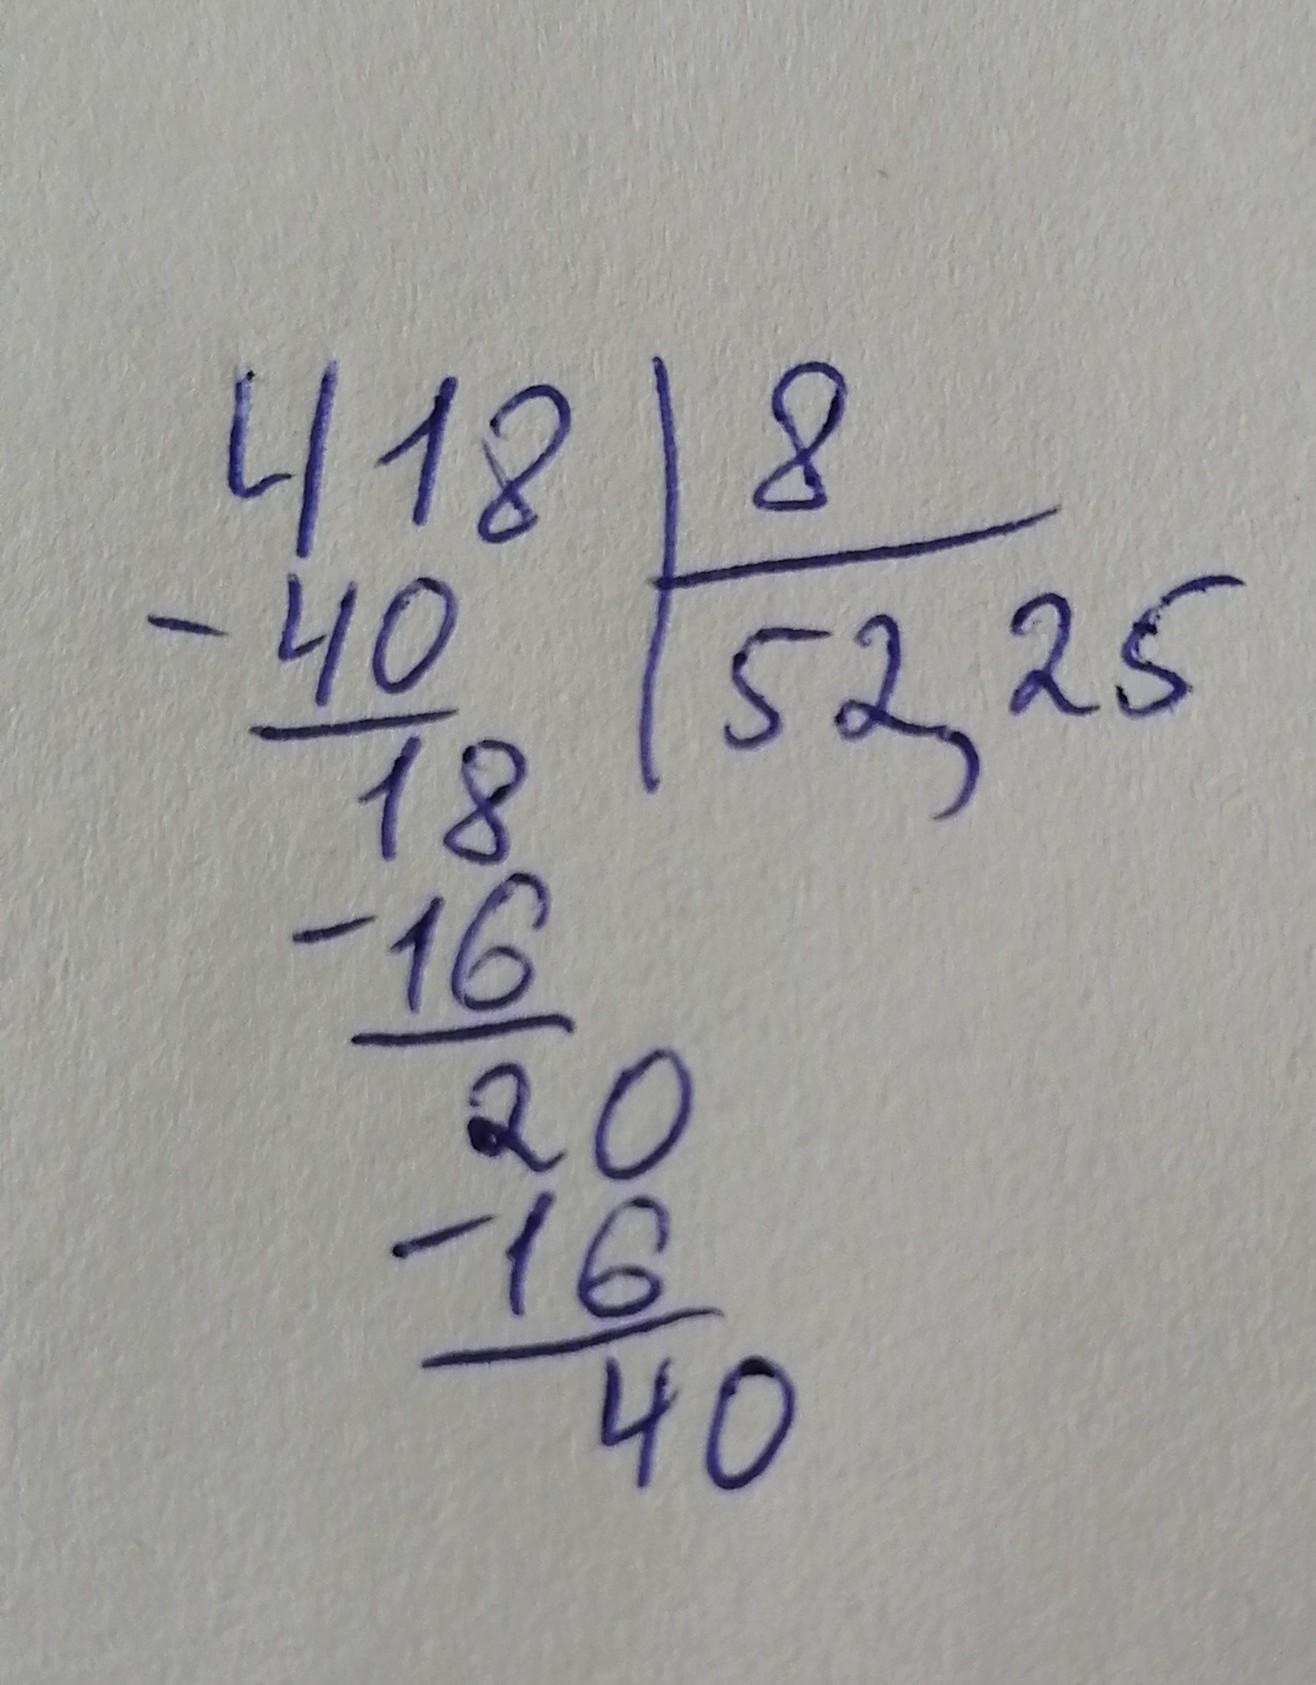 418 8
-40 52,25
18
-16
20
-16
40